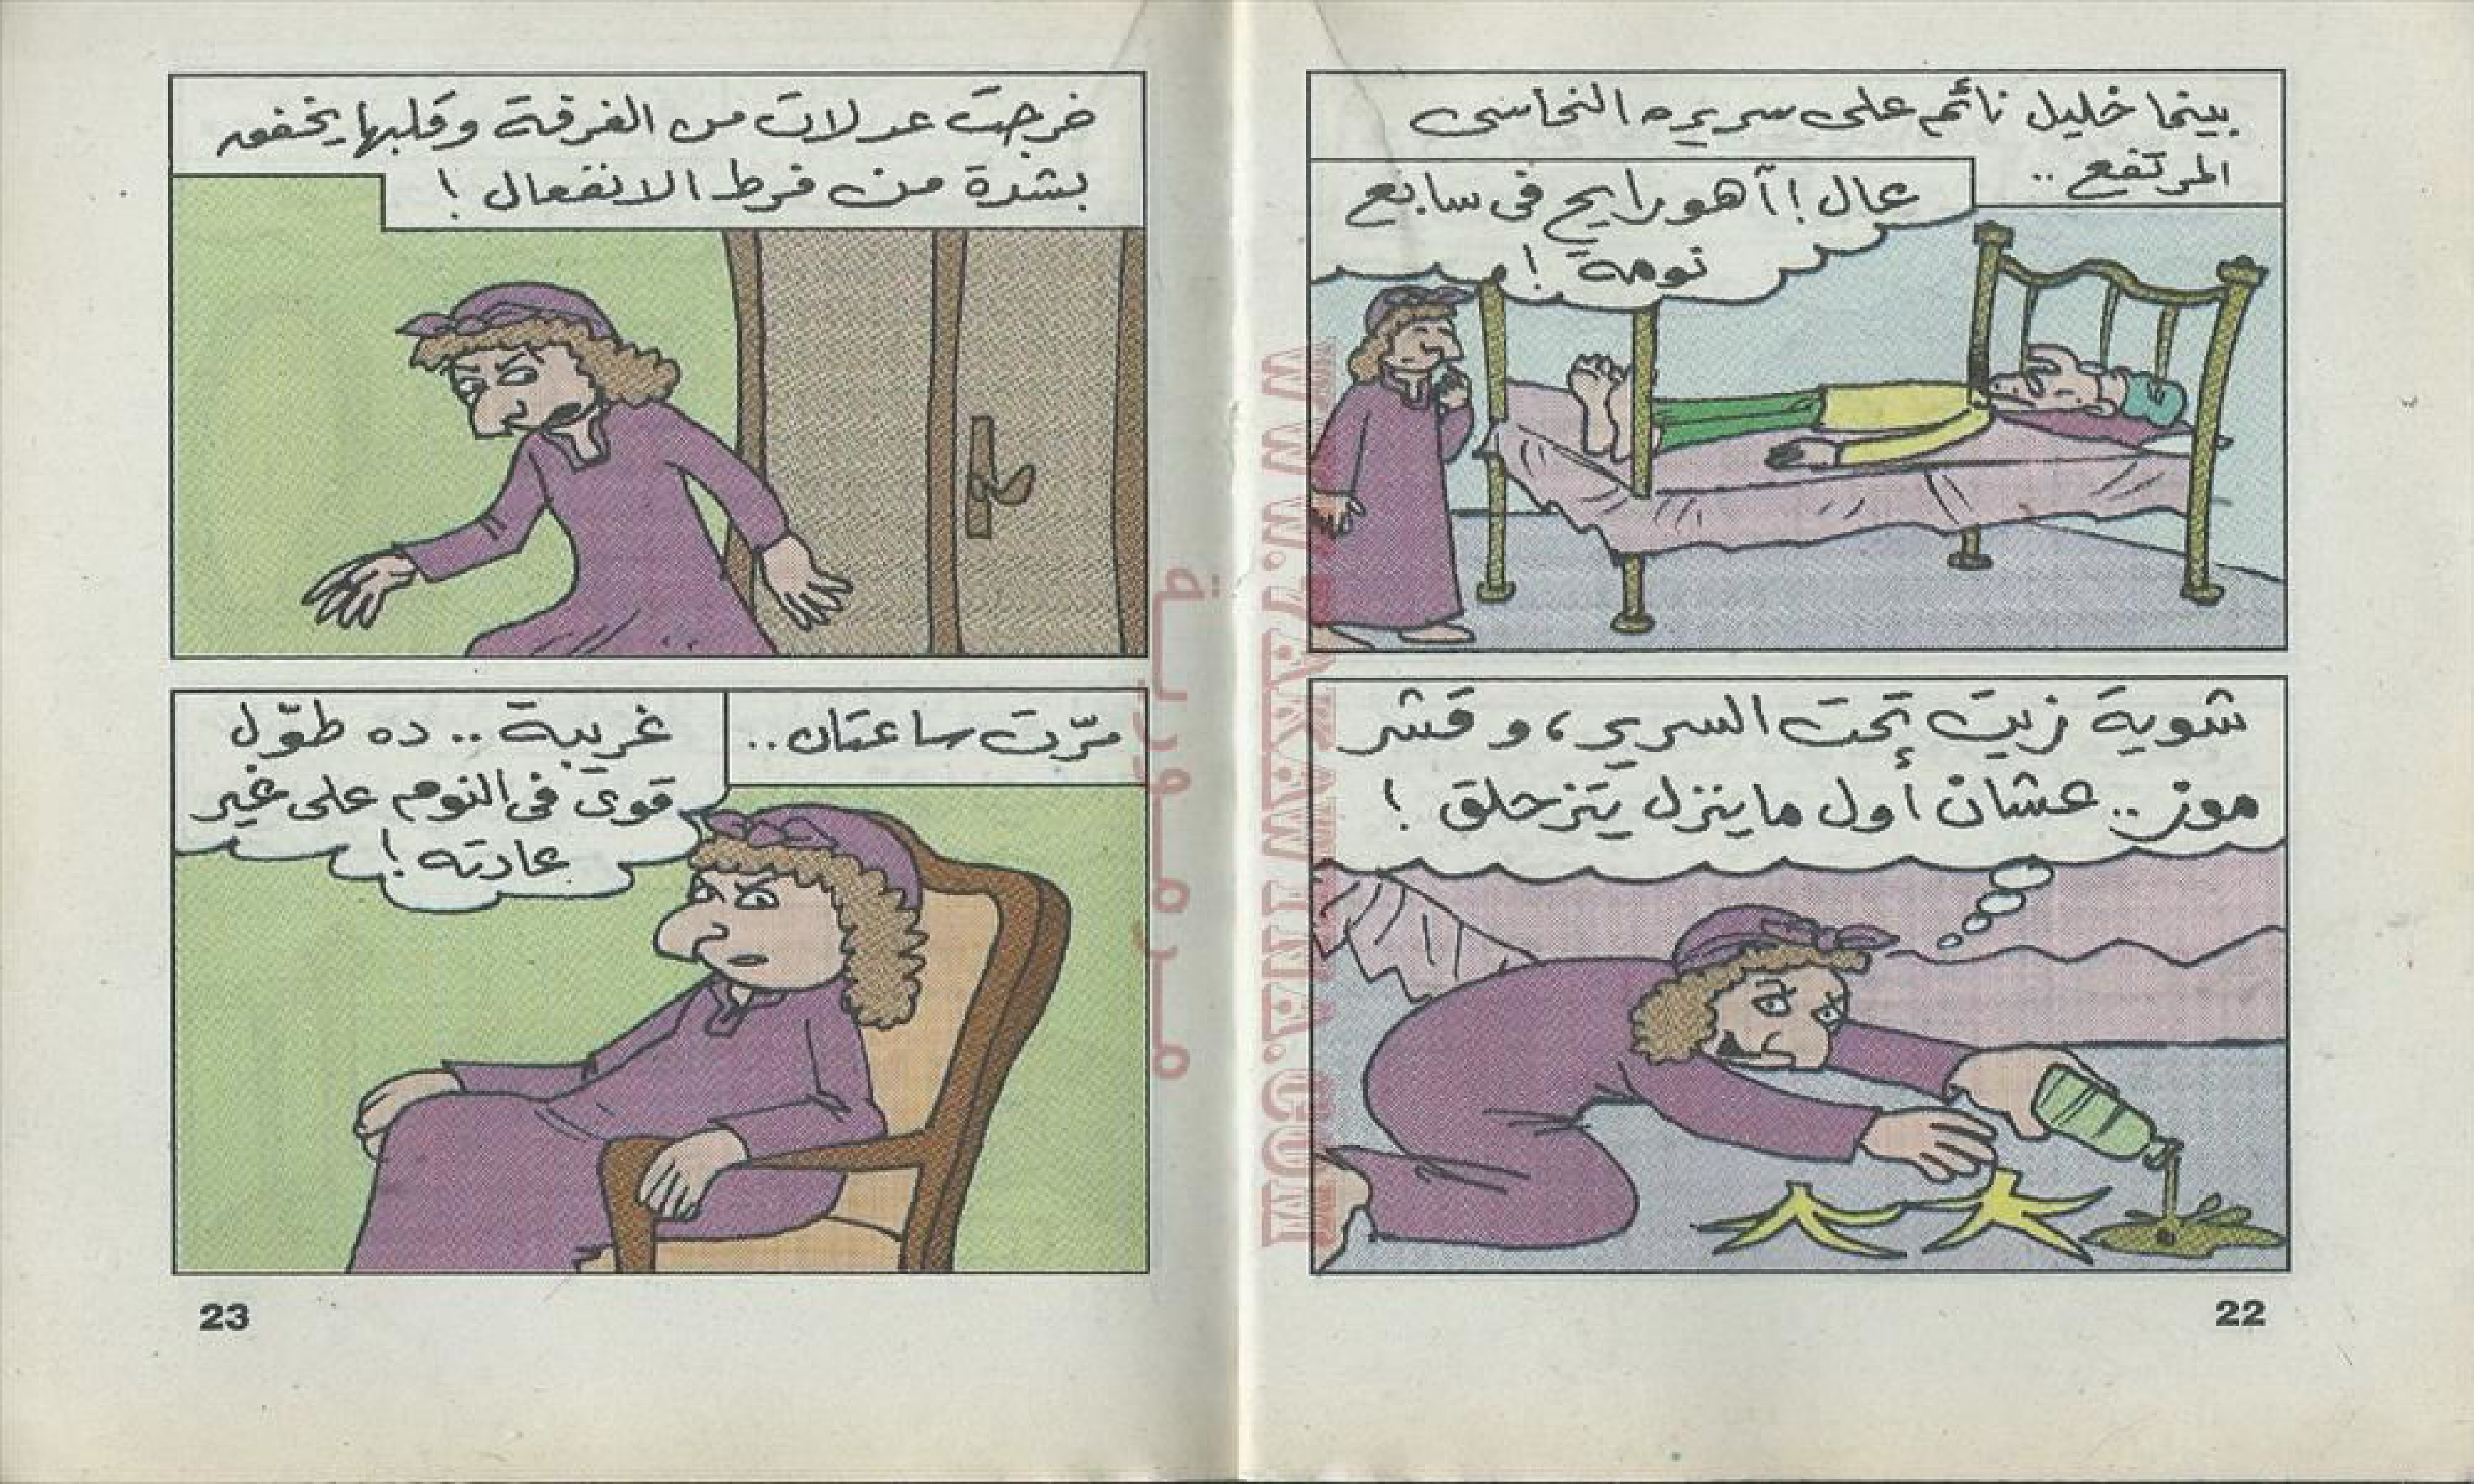 بينما خليل نائم على سريره النحاسى
المرتفع ..
عال ! آهو رايح فى سابع
نومة !
شوية زيت تحت السرير ، و قشر
موز .. عشان أول ما ينزل يتزحلق !
22
خرجت عدلات من الغرفة وقلبها يخفق
بشدة من فرط الانفعال !
مرّت ساعتان ..
غريبة .. ده طوّل
قوى فى النوم على غير
عادته !
23